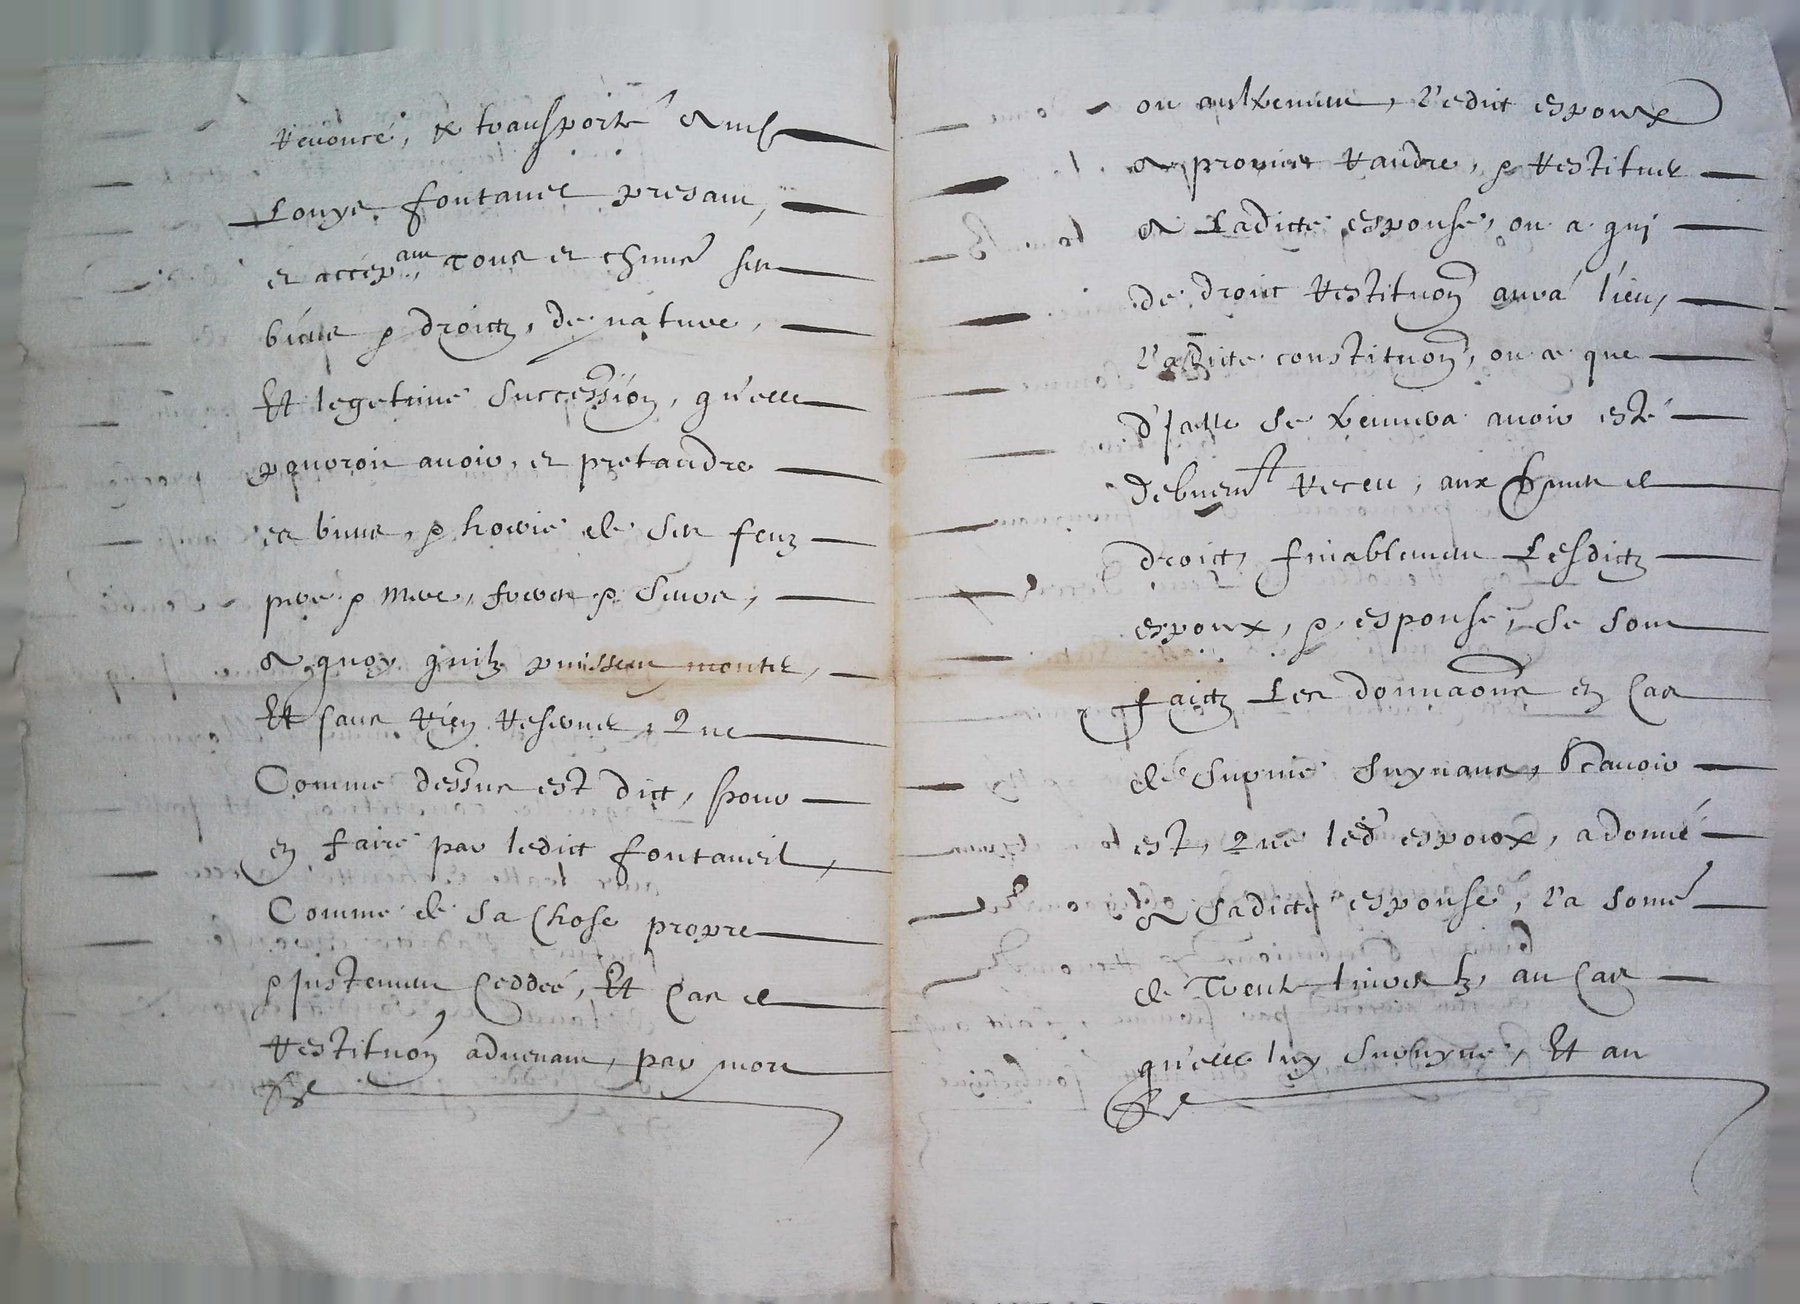 renoncé, & transporté a mes
Louys fontanel presant,
et accepant, tous et chuns ses
biens & droictz, de nature,
Et legetime succession, qu'elle
pouroit avoir, et pretandre
es biens, & hoirie de ses feuz
pere & mere, freres & seurs,
a quoy quilz puissent monter,
Et sans rien reserver, Que
Comme dessus est dict, pour
en faire par ledict fontaneil,
Comme de sa chose propre
& justement ceddée, Et cas de
restituon advenant, par mort
ou aultrement, l'edict espoux
a promis randre, & restituer
a Ladicte espouse, ou a qui
de droict restituon aura lieu,
l'adicte constituon, ou a que
d'jcelle se treuvera avoir esté
debuemt receu, aux formes de
droict, finablement Lesdictz
espoux, & espouse, se sont
faictz Les donnaons en cas
de survie suyvans, Scavoir
est, Que led' espoux, a donné
a sadicte espouse, l'a some
de Trente livres tz, au cas
qu'elle luy survive, Et au